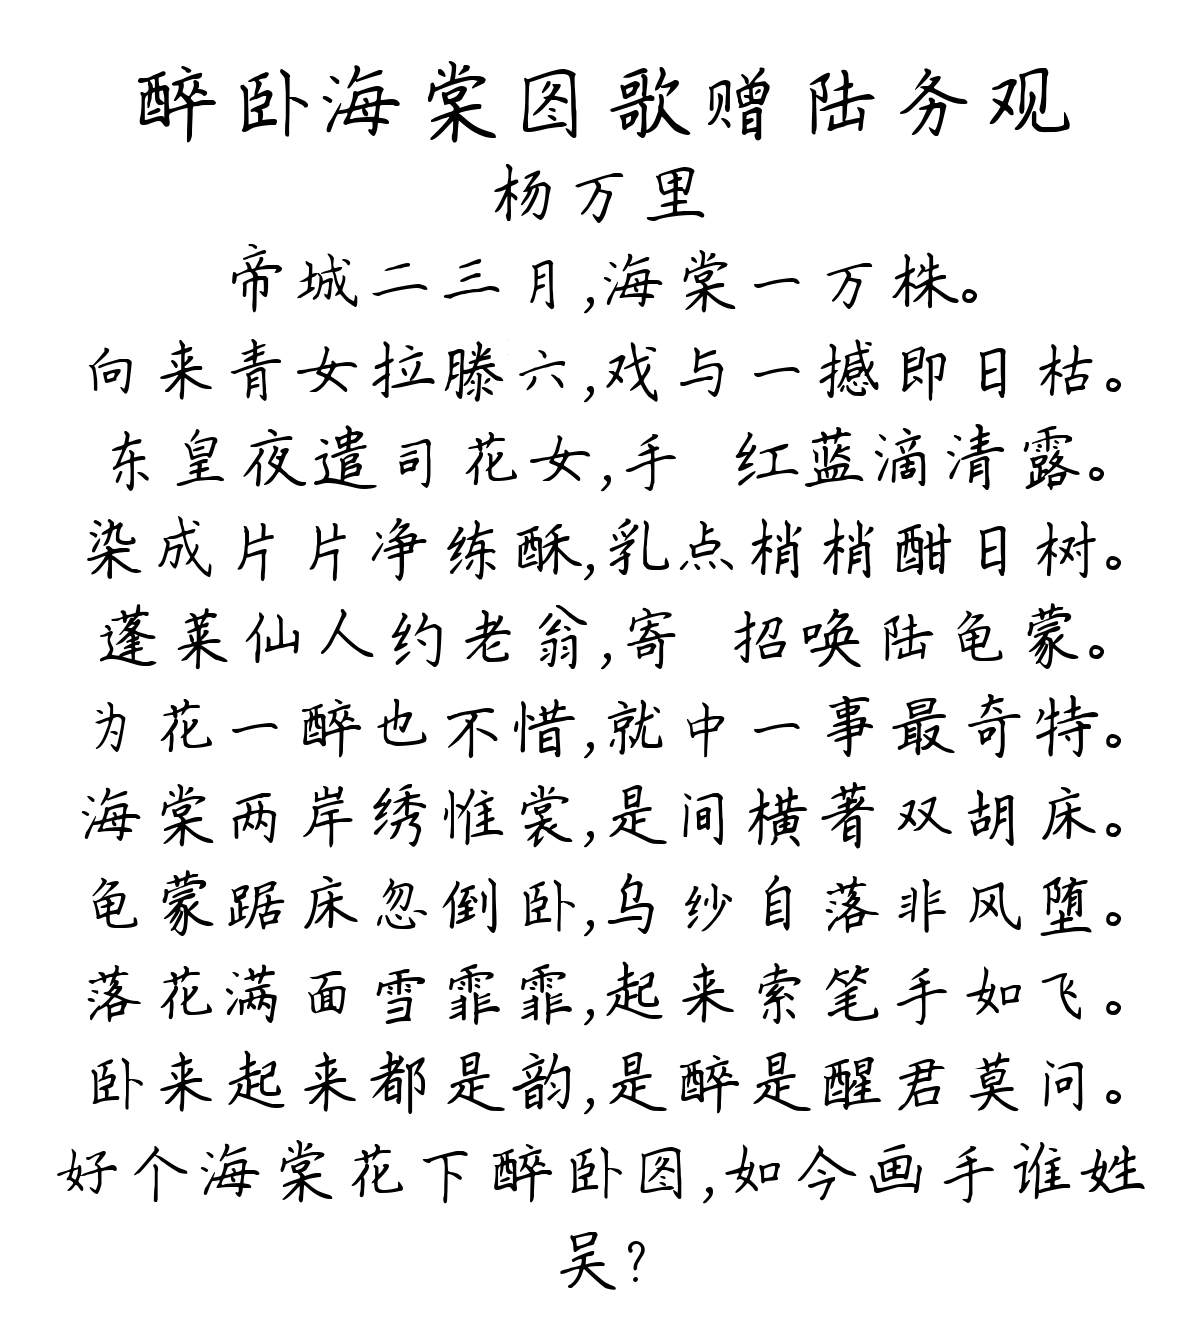 醉卧海棠图歌赠陆务观
杨万里
帝城二三月,海棠一万株。
向来青女拉滕六,戏与一撼即日枯。
东皇夜遣司花女,手 红蓝滴清露。
染成片片净练酥,乳点梢梢酣日树。
蓬莱仙人约老翁,寄 招唤陆龟蒙。
为花一醉也不惜,就中一事最奇特。
海棠两岸绣惟裳,是间横著双胡床。
龟蒙踞床忽倒卧,乌纱自落非风堕。
落花满面雪霏霏,起来索笔手如飞。
卧来起来都是韵,是醉是醒君莫问。
好个海棠花下醉卧图,如今画手谁姓
吴?